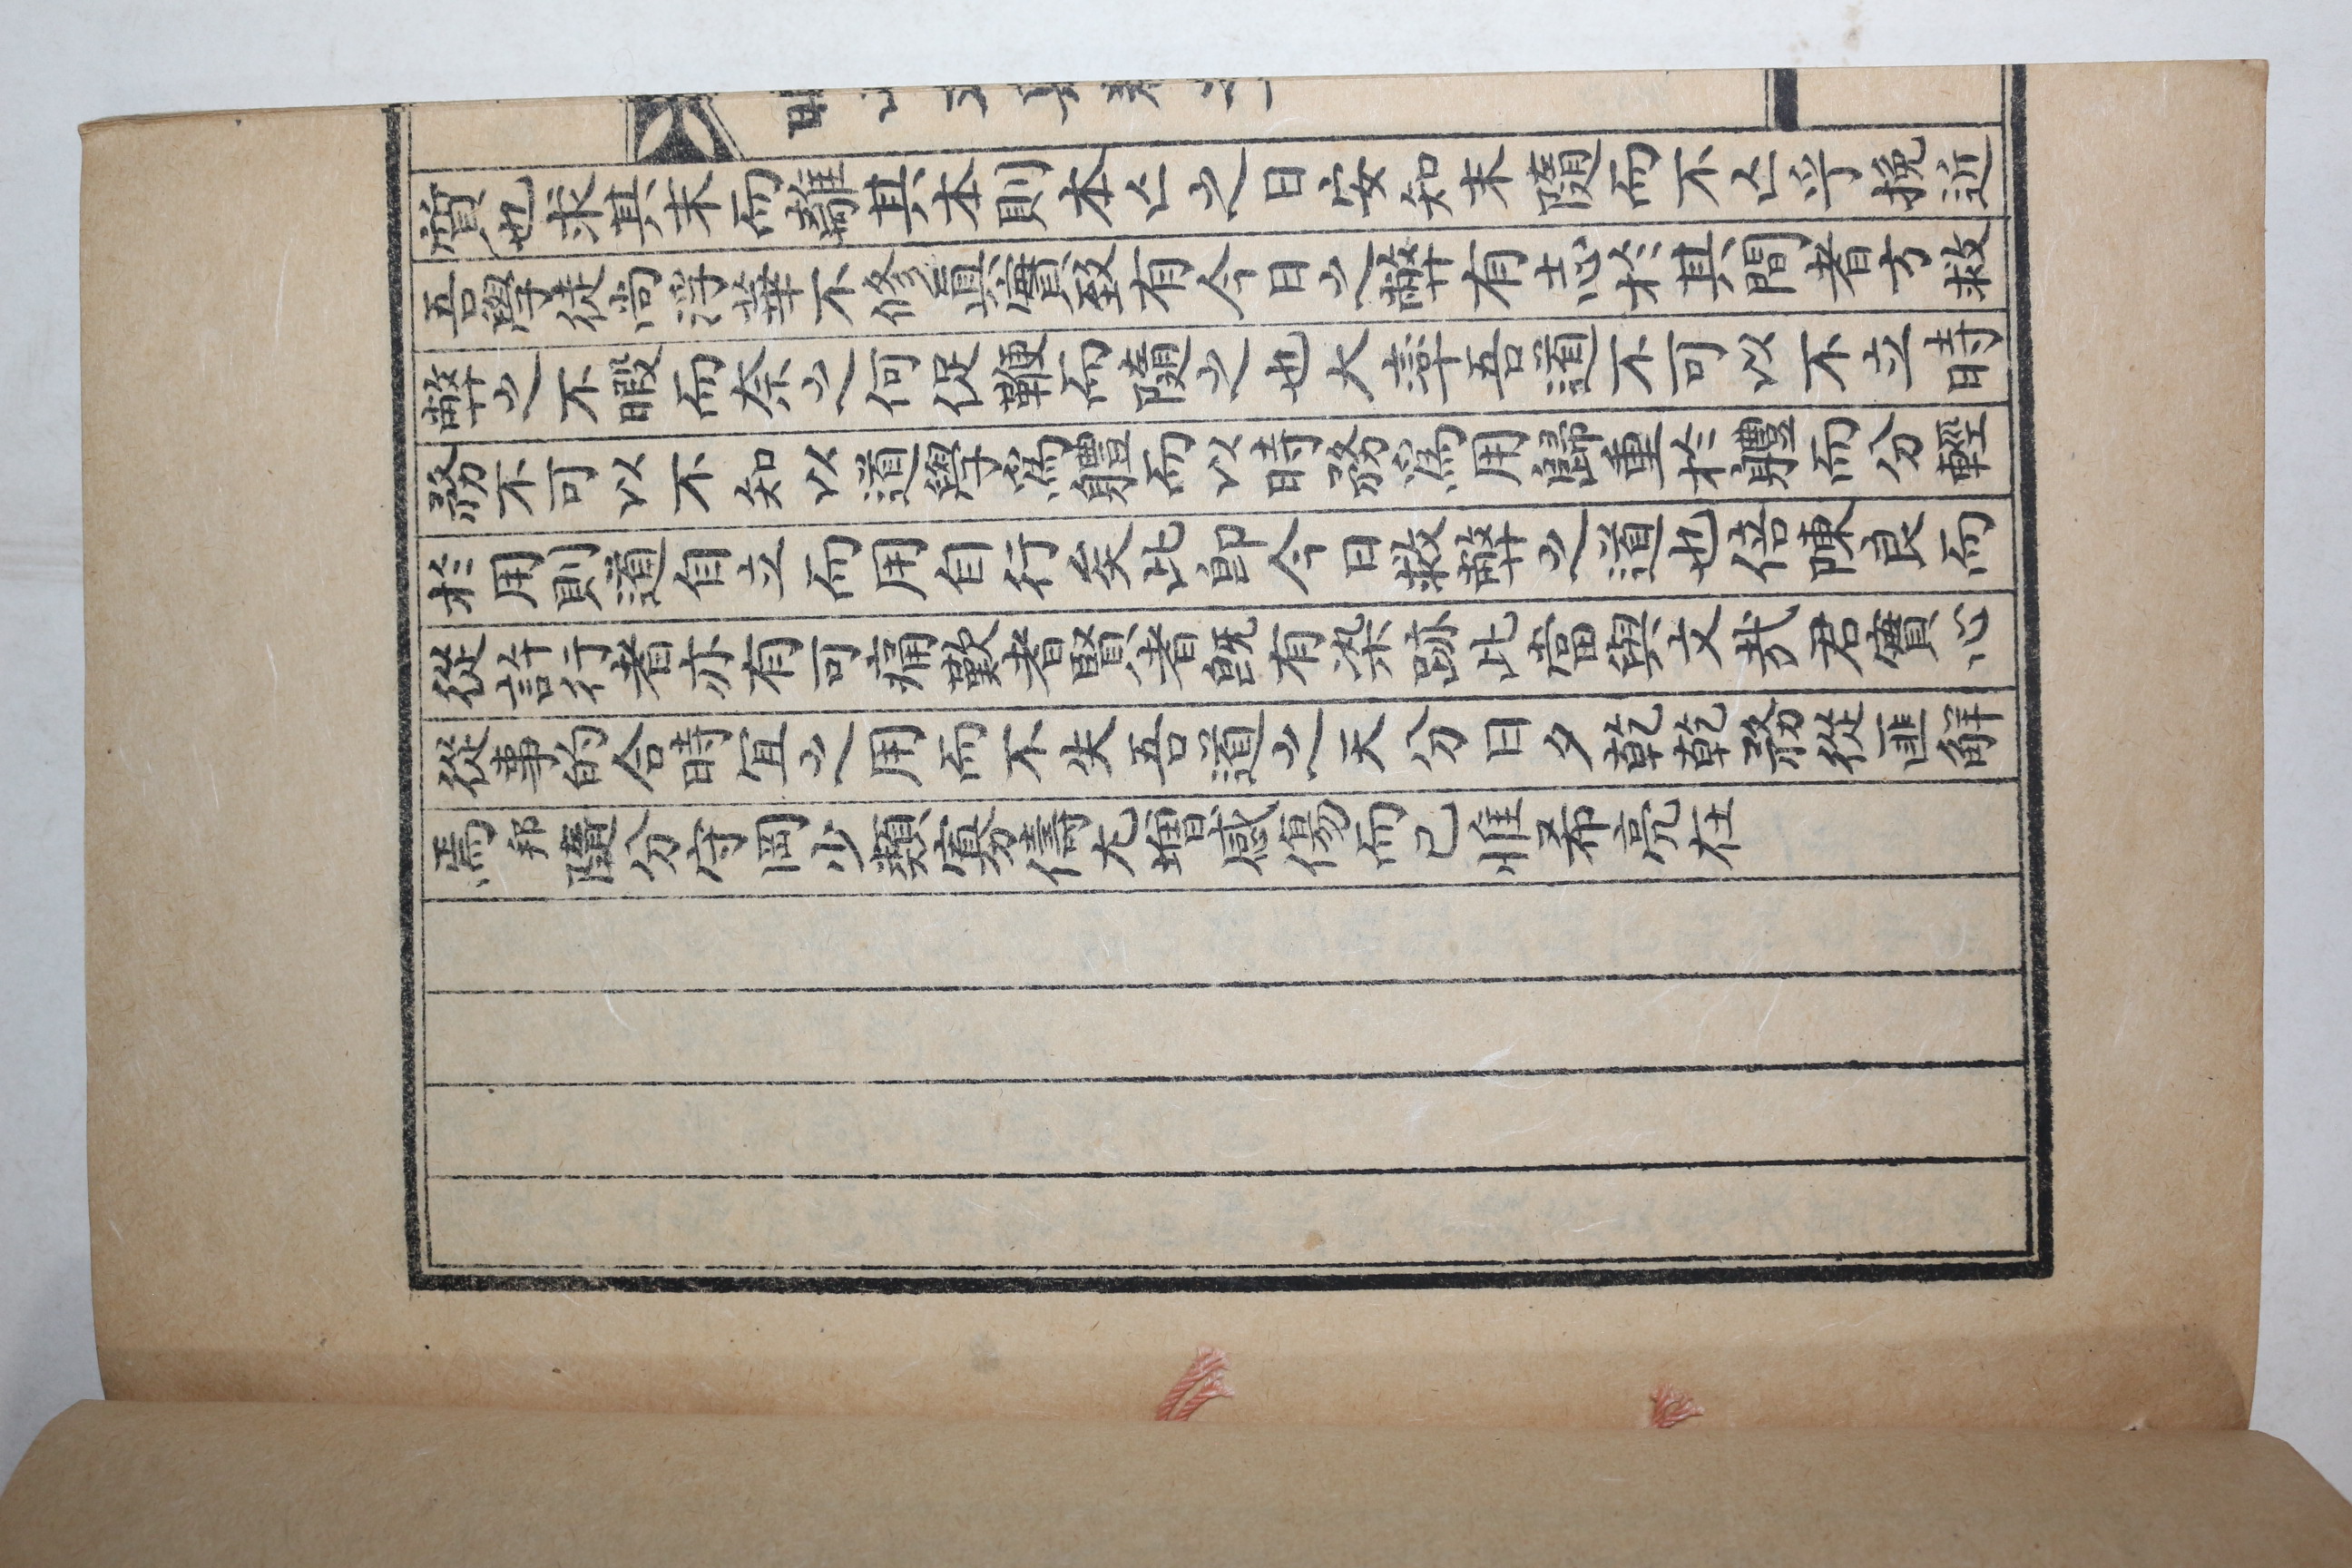 質也求其末而離其本則本亡之日安知末隨而不亡乎挽近
吾學徒尚浮華不修眞實致有今日之弊有志於其間者方救
弊之不暇而奈之何促鞭而隨之也大率吾道不可以不立時
務不可以不知以道學爲軆而以時務爲用歸重於軆而分輕
於用則道自立而用自行矣此卽今日救弊之道也倍陳良而
從許行者亦有可痛歎者賢者旣有染跡此當與文㢤君實心
從事的合時宜之用而不失吾道之天分日夕乾乾務從匪觧
焉邦隨分守岡少類寡儔尢增感傷而已惟希亮在